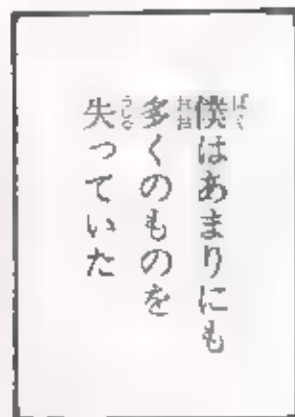 僕はあまりにも
多くのものを
失っていた